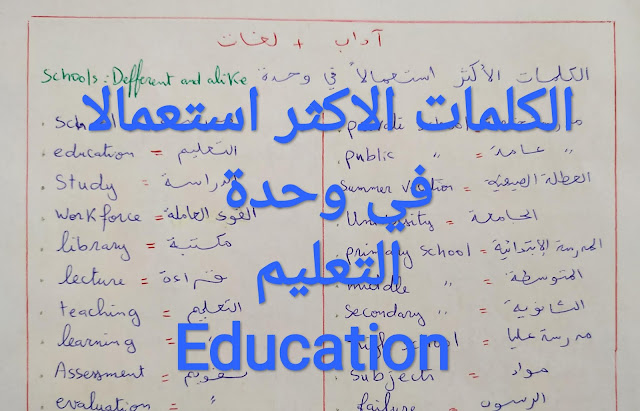 آداب + لغات
Schools: Defferent and alike الكلمات الأكثر استعمالاً في وحدة
الكلمات الاكثر استعمالا
في وحدة
التعليم
Education
education = التعليم
Study = الدراسة
Workforce = القوى العاملة
library = مكتبة
lecture = قراءة
teaching = التعليم
learning =
Assessment = تقويم
evaluation = "
public " = " عامة
Summer vacation = العطلة الصيفية
University = الجامعة
primary school = المدرسة الإبتدائية
middle " = المتوسطة
secondary " = الثانوية
school = مدرسة عليا
Subjects = مواد
failure = الرسوب